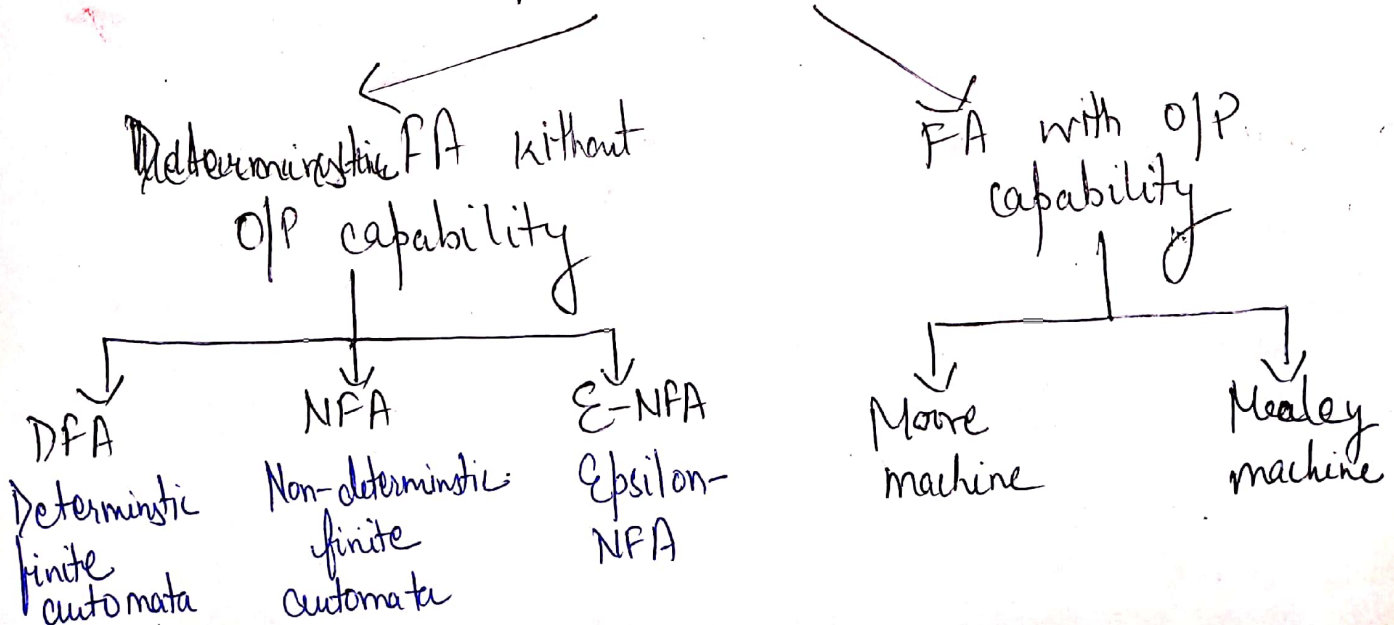 Deterministic FA without
O/P capability
FA with O/P
capability
DFA
Determinstic
finite
automata
NFA
Non-determinstic
finite
automata
Ɛ-NFA
Epsilon-
NFA
Moore
machine
Mealey
machine